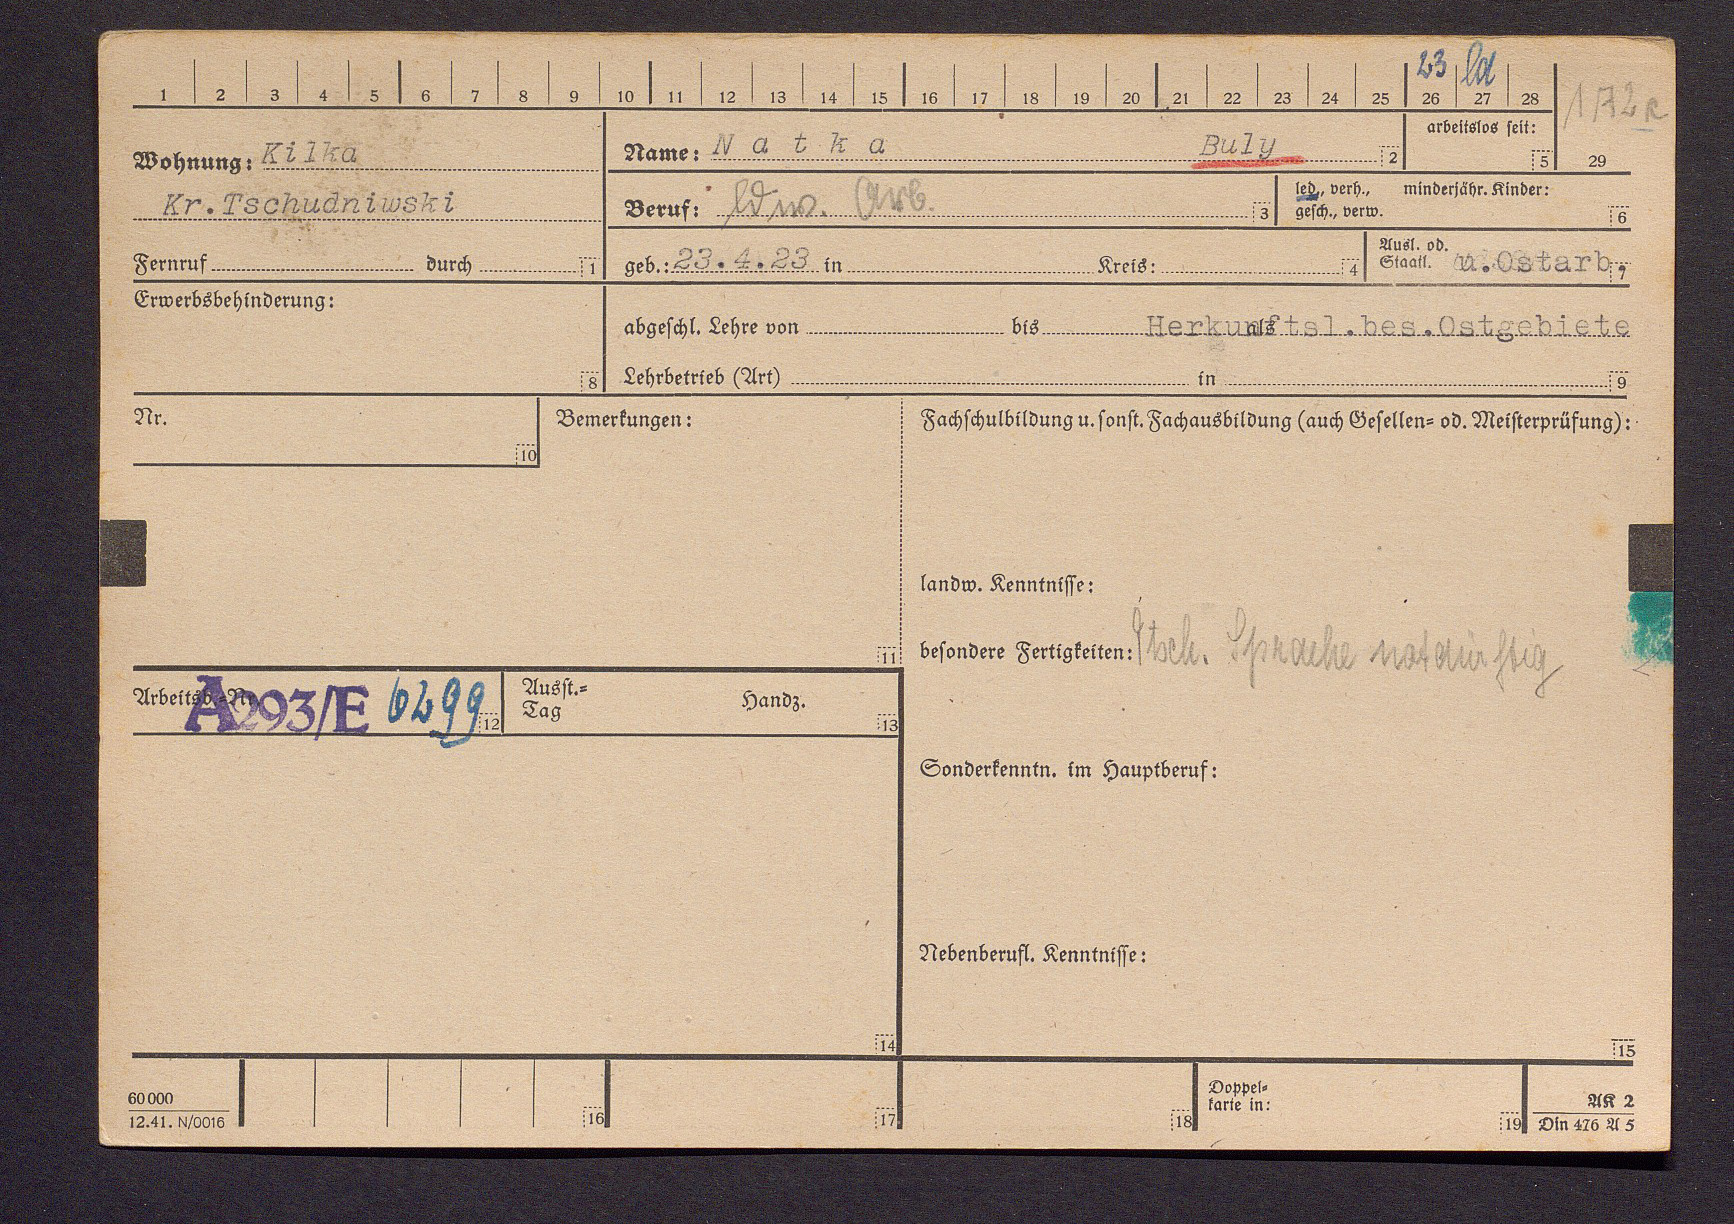 23 ld
1 2 3 4 5 6 7 8 9 10 11 12 13 14 15 16 17 18 19 20 21 22 23 24 25 26 27 28
172
29
Wohnung: Kilka
Kr.Tschudniwski
Fernruf durch 1
Name: N a t k a Buly 2
arbeitslos seit: 5
Beruf: ldw. Arb. 3
led., verh., minderjähr. Kinder:
gesch., verw. 6
geb.: 23.4.23 in Kreis: 4
Ausl. od.
Staatl. u.Ostarb. 7
Erwerbsbehinderung:
8
abgeschl. Lehre von bis als Herkunftsl.bes.Ostgebiete
Lehrbetrieb (Art) in 9
Nr.
10
Bemerkungen:
11
Fachschulbildung u. sonst. Fachausbildung (auch Gesellen- od. Meisterprüfung):
landw. Kenntnisse:
besondere Fertigkeiten: Dtsch. Sprache notdürftig
Arbeitsb.-Nr. A293/E 6299 12
Ausst.-
Tag Handz. 13
Sonderkenntn. im Hauptberuf:
Nebenberufl. Kenntnisse:
14
15
60 000
12.41. N/0016
16
17
18
Doppel-
karte in:
19
AK 2
Din 476 A 5